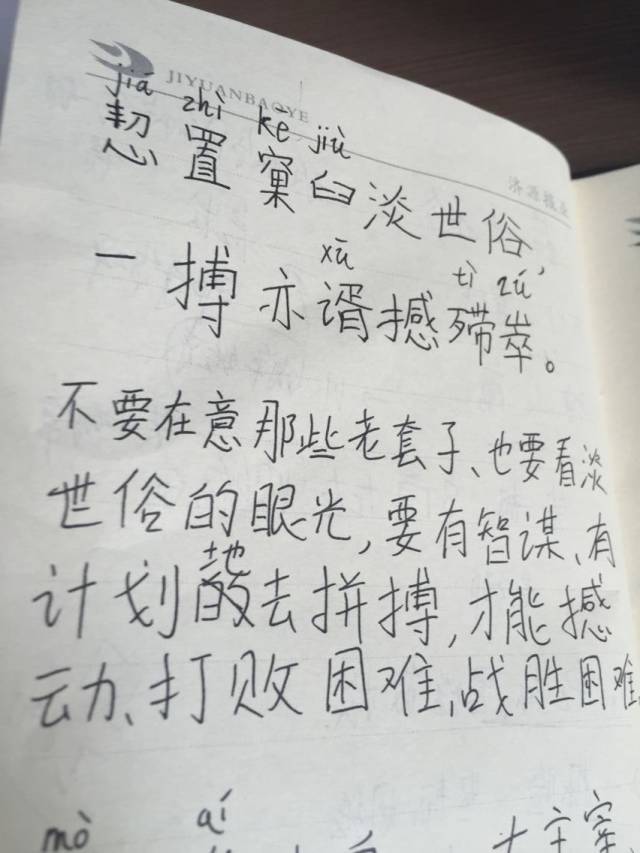 JIYUANBAOYE
济源报业
jiá zhì kē jiù
恝置窠臼淡世俗
xū tì zú
一搏亦谞撼殢崒。
不要在意那些老套子、也要看淡
世俗的眼光,要有智谋、有
地
计划的去拼搏,才能撼
动、打败困难,战胜困难
mò ái